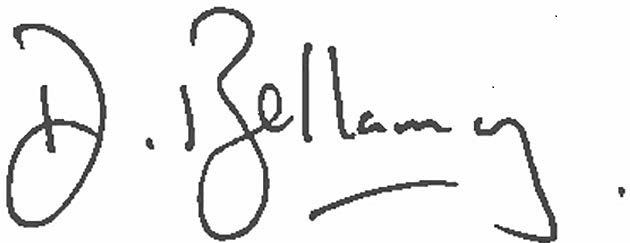 D. Bellamy.